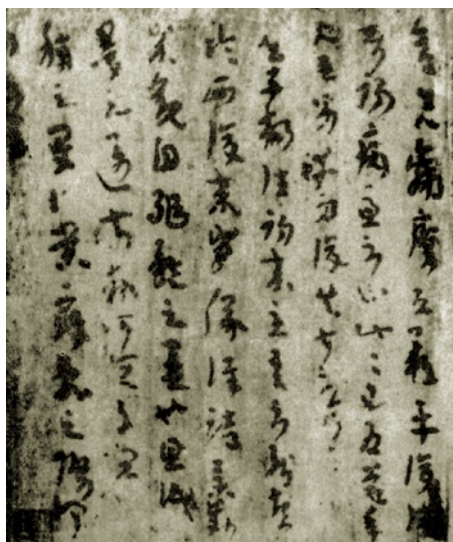 彦先羸瘵恐難平復往屬
初病慮不止此此已為慶承
使唯男幸為復失前憂耳
吳子楊往初來主吾不能盡
臨西復來威儀詳跱舉動
成觀自軀體之美也思識
量之邁前勢所恒有宜
稱之夏伯榮寇亂之際聞